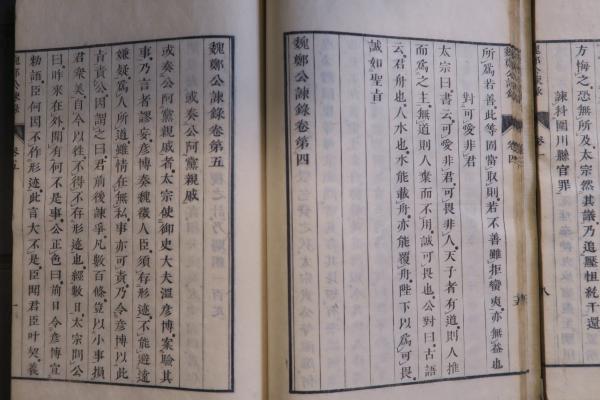 方悔之恐無所及太宗然其議乃追壓怛紇干還
諫科圍川縣官罪
魏鄭公諫錄
卷四
所爲若善此等固當取則若不善雖拒蠻夷亦無益也
對可愛非君
太宗曰書云可愛非君可畏非人天子者有道則人推
而爲之主無道則人棄而不用誠可畏也公對曰古語
云君舟也人水也水能載舟亦能覆舟陛下以爲可畏
誠如聖旨
魏鄭公諫錄卷第四
魏鄭公諫錄卷第五
或奏公阿黨親戚
或奏公阿黨親戚者太宗使御史大夫溫彥博案驗其
事乃言者謬妄彥博奏魏徵人臣須存形迹不能避遠
嫌疑爲人所道雖情在無私事亦可責乃令彥博以此
言責公因謂之曰君前後諫爭凡數百條豈以小事損
君衆美自今以往不得不存形迹也經數日太宗問公
曰昨來在外聞有何不是事公正色曰前日令彥博宣
勅語臣何因不作形迹此言大不是臣聞君臣叶契義
魏鄭公諫錄
卷五
一